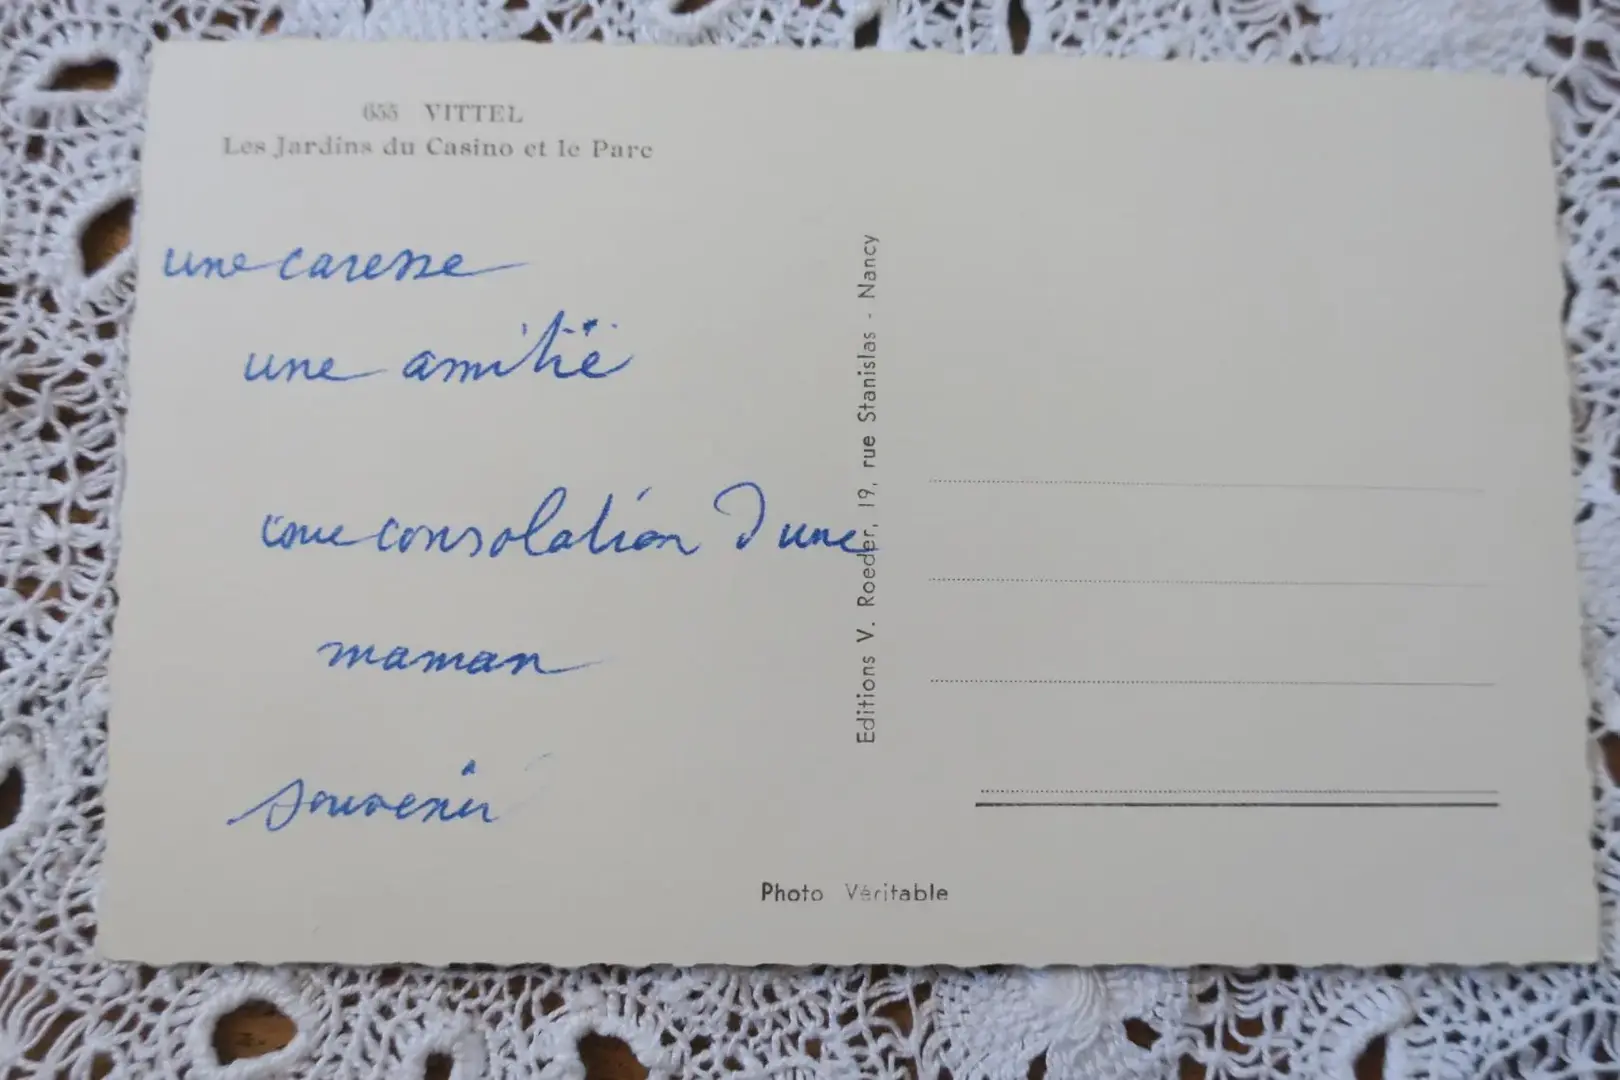 655 VITTEL
Les Jardins du Casino et le Parc
une caresse
une amitié
une consolation d'une
maman
souvenir
Editions V. Roeder, 19, rue Stanislas - Nancy
Photo Véritable